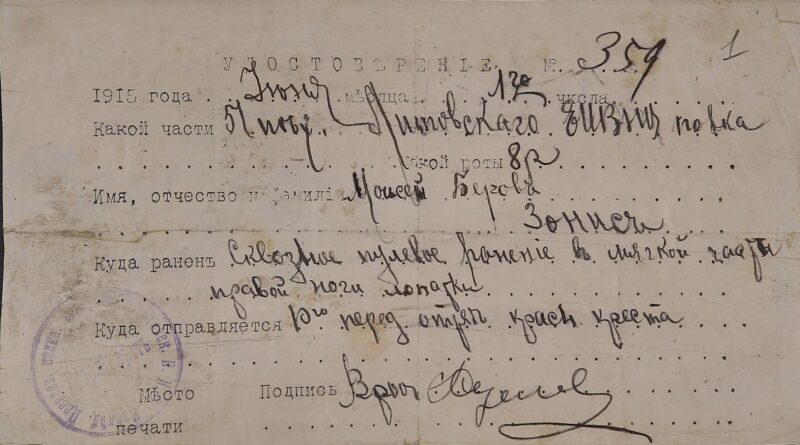 УДОСТОВѢРЕНІЕ №. 359 1
1915 года. Іюня мѣсяца. 13го числа
Какой части 51 пѣх. Литовскаго ЕИВНЦ полка
какой роты 8р
Имя, отчество и фамилія Моисей Беровъ
Зонисъ
Куда раненъ Сквозное пулевое раненіе въ мягкой части
правой ноги лопатки
Куда отправляется 10го перед. отряд красн креста
Мѣсто Подпись Врач
печати